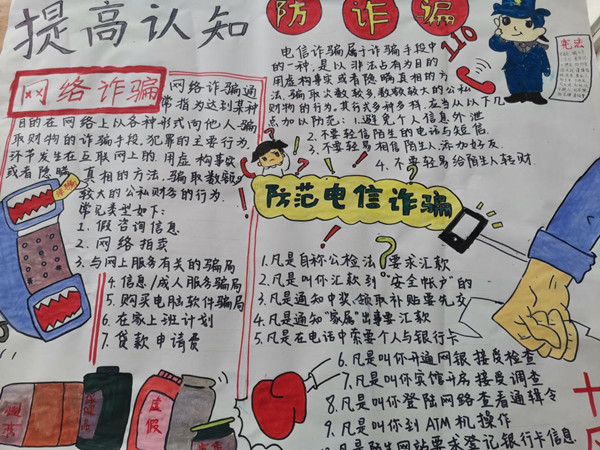 提高认知
防诈骗
110
宪法
网络诈骗
网络诈骗通
常指为达到某种
目的在网络上以各种形式向他人骗
取财物的诈骗手段,犯罪的主要行为,
环节发生在互联网上的,用虚构事实
或者隐瞒真相的方法,骗取数额
较大的公私财务的行为.
常见类型如下:
1.假咨询信息
2.网络拍卖
3.与网上服务有关的骗局
4.信息/成人服务骗局
5.购买电脑软件骗局
6.在家上班计划
7.贷款申请费
电信诈骗属于诈骗手段中
的一种,是以非法占有为目的
用虚构事实或者隐瞒真相的方
法,骗取次数较多,数额较大的公私
财物的行为,其行式多种多样,应当从以下几
点加以防范:1.避免个人信息外泄
2.不要轻信陌生的电话与短信
3.不要轻易相信陌生人添加好友.
4.不要轻易给陌生人转财
防范电信诈骗
1.凡是自称公检法要求汇款
2.凡是叫你汇款到"安全帐户"的
3.凡是通知中奖、领取补贴要先交
4.凡是通知"家属"出事要汇款
5.凡是在电话中索要个人与银行卡
6.凡是叫你开通网银接受检查
7.凡是叫你宾馆开房接受调查
8.凡是叫你登陆网络查看通辑令
9.凡是叫你到ATM机操作
凡是陌生网站要求登记银行卡信息
虚假